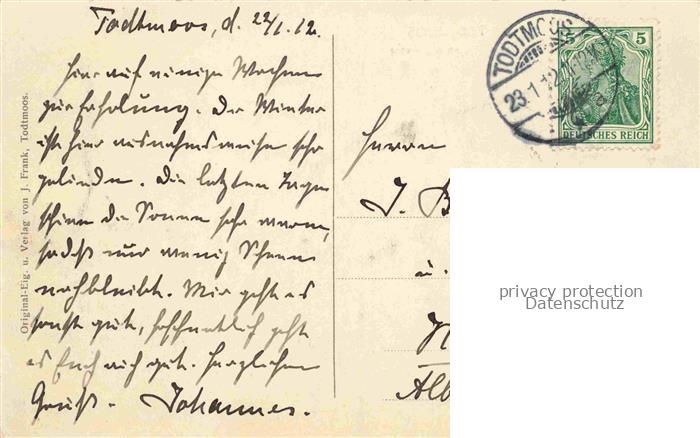 Todtmoos, d. 22/1.12.
Hier auf einige Wochen
zur Erholung. Der Winter
ist hier ausnahmsweise sehr
gelinde. Die letzten Tage
schien die Sonne sehr warm,
sodaß nur wenig Schnee
nachbleibt. Mir geht es
sonst gut, hoffentlich geht
es Euch auch gut. Herzlichen
Gruß. Johannes.
Original-Eig. u. Verlag von J. Frank, Todtmoos.
TODTMOOS
23.1.12
5
DEUTSCHES REICH
Herrn
J. B
u.
Alb
privacy protection
Datenschutz